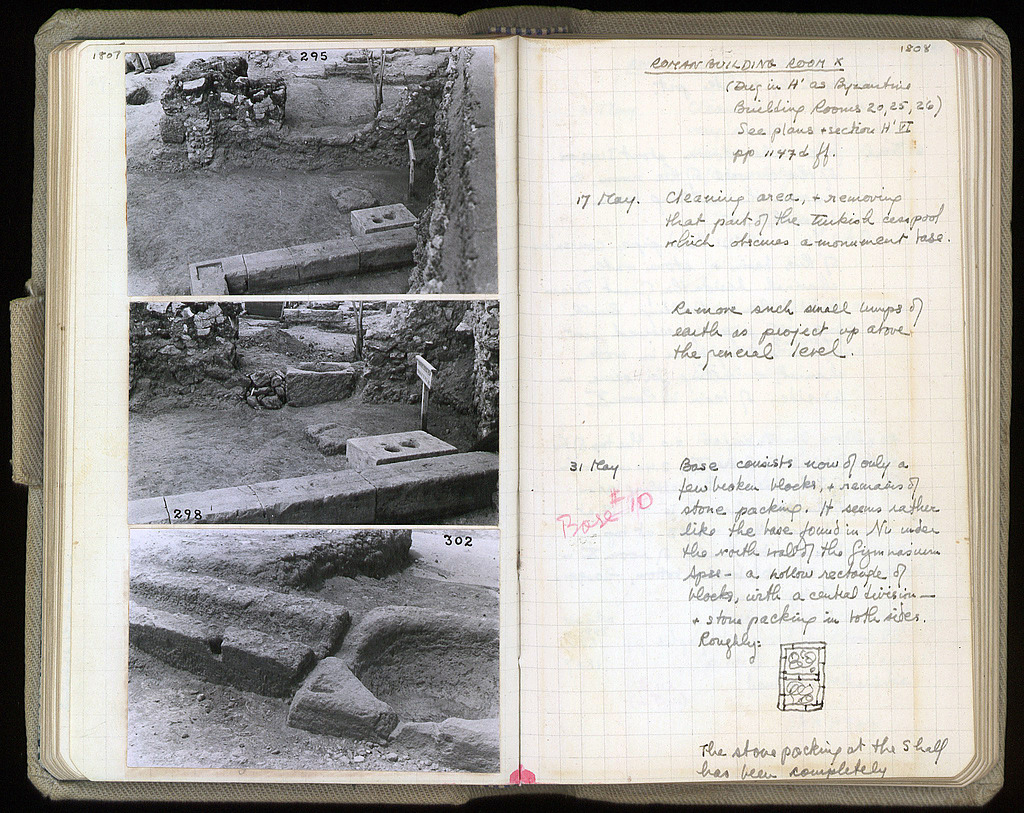 1807
295
298
302
1808
ROMAN BUILDING ROOM X
(Dug in H' as Byzantine
Building Rooms 20, 25, 26)
See plans + section H' VI
pp 1147d ff.
17 May. Cleaning area, + removing
that part of the Turkish cesspool
which obscures a monument base.
Remove such small lumps of
earth as project up above
the general level.
31 May Base consists now of only a
few broken blocks, + remains of
Base #10
stone packing. It seems rather
like the base found in Nu under
the north wall of the Gymnasium
Apse - a hollow rectangle of
blocks, with a central division -
+ stone packing in both sides.
Roughly:
The stone packing at the S half
has been completely